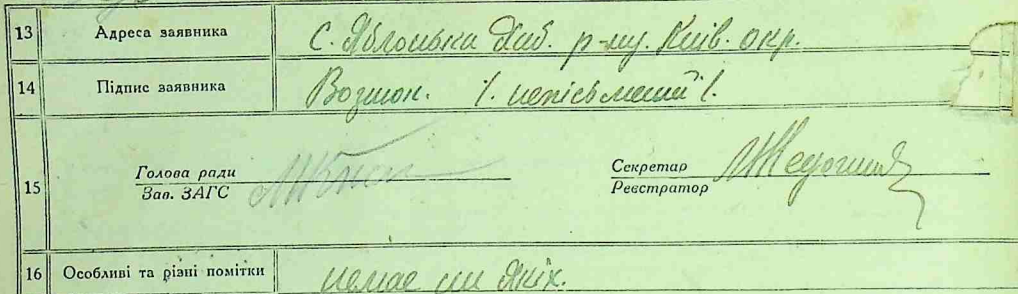 13 Адреса заявника с. Яблонька Хаб. р-ну. Київ. окр.
14 Підпис заявника Возмон. /. неписьмений /.
15 Голова ради
Зав. ЗАГС
Секретар
Реєстратор
16 Особливі та різні помітки немає ни якіх.